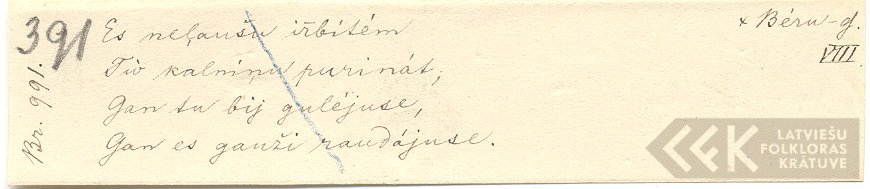 391
Br. 991.
Es neļaušu irbitém
Tìo kalniņu purinát;
Gan tu bij guléjuse,
Gan es gauži raudájuse.
× Béru-g.
VIII
LATVIEŠU
FOLKLORAS
KRĀTUVE